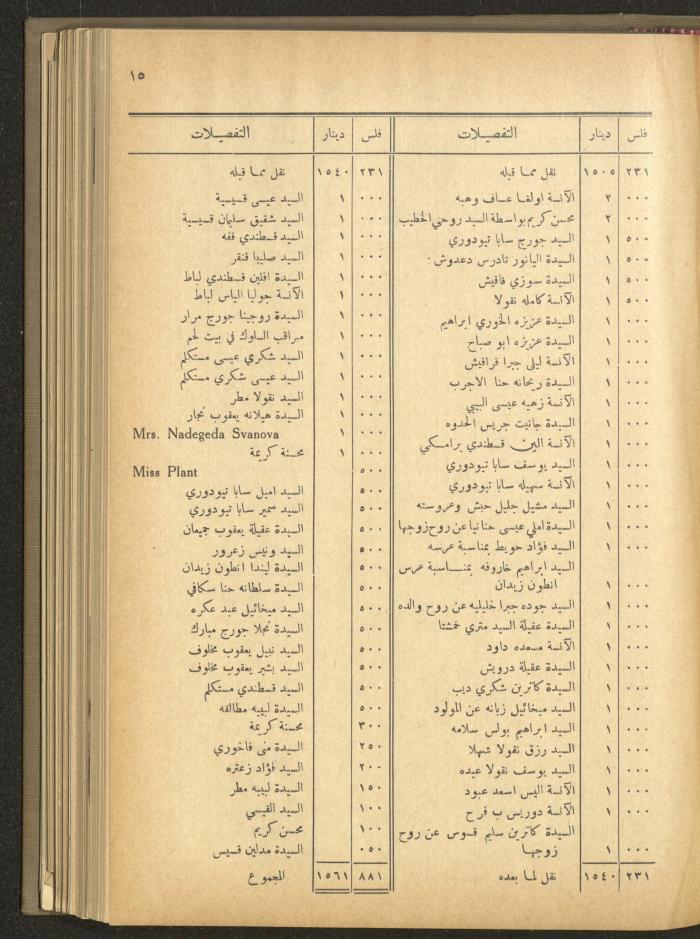 ١٥
فلس دينار التفصيـلات
٢٣١ ١٥٠٥ نقل ممـا قبله
٠٠٠ ٢ الآنسة اولغـا عسـاف وهبه
٠٠٠ ٢ محسن كريم بواسطة السيد روحي الخطيب
٥٠٠ ١ السيد جورج سابا تيودوري
٥٠٠ ١ السيدة اليانور تادرس دعدوش
٥٠٠ ١ السيدة سوزي قافيش
٥٠٠ ١ الآنسة كامله نقولا
٠٠٠ ١ السيدة عزيزه الخوري ابراهيم
٠٠٠ ١ السيدة عزيزه ابو صباح
٠٠٠ ١ الآنسة ليلى جبرا قراقيش
٠٠٠ ١ السيدة ريحانه حنا الاجرب
٠٠٠ ١ الآنسة زهيه عيسى البيبي
٠٠٠ ١ السيدة جانيت جريس الحدوه
٠٠٠ ١ الآنسة الين قسطندي برامـكي
٠٠٠ ١ السيد يوسف سابا تيودوري
٠٠٠ ١ الآنسة سهيله سابا تيودوري
٠٠٠ ١ السيد مشيل جليل حبش وعروسته
٠٠٠ ١ السيدة املي عيسى حنانيا عن روح زوجها
٠٠٠ ١ السيد فؤاد حويط بمناسبة عرسه
السيد ابراهيم خاروفه بمنـــاسبة عرس
٠٠٠ ١ انطون زيدان
٠٠٠ ١ السيد جوده جبرا خليليه عن روح والده
٠٠٠ ١ السيدة عقيلة السيد متري خمشتا
٠٠٠ ١ الآنسة مسعده داود
٠٠٠ ١ السيدة عقيلة درويش
٠٠٠ ١ السيدة كاترين شكري ديب
٠٠٠ ١ السيد ميخائيل زبانه عن المولود
٠٠٠ ١ السيد ابراهيم بولس سلامه
٠٠٠ ١ السيد رزق نقولا شهلا
٠٠٠ ١ السيد يوسف نقولا عبده
٠٠٠ ١ الآنسة اليس اسعد عبود
٠٠٠ ١ الآنسة دوريس ب فرح
السيدة كاترين سليم قسوس عن روح
٠٠٠ ١ زوجهـا
٢٣١ ١٥٤٠ نقل لمـا بعده
فلس دينار التفصيـلات
٢٣١ ١٥٤٠ نقل ممـا قبله
٠٠٠ ١ السيد عيسى قسيسية
٠٠٠ ١ السيد شفيق سليمان قسيسية
٠٠٠ ١ السيد قسطندي فقه
٠٠٠ ١ السيد صليبا قنقر
٠٠٠ ١ السيدة افلين قسطندي لباط
٠٠٠ ١ الآنسة جوليا الياس لباط
٠٠٠ ١ السيدة روجينا جورج مرار
٠٠٠ ١ مراقب السلوك في بيت لحم
٠٠٠ ١ السيد شكري عيسى مستكلم
٠٠٠ ١ السيد عيسى شكري مستكلم
٠٠٠ ١ السيد نقولا مطر
٠٠٠ ١ السيدة هيلانه يعقوب نجار
٠٠٠ ١ Mrs. Nadegeda Svanova
٠٠٠ ١ محسنة كريمة
٥٠٠ Miss Plant
٥٠٠ السيد اميل سابا تيودوري
٥٠٠ السيد سمير سابا تيودوري
٥٠٠ السيدة عقيلة يعقوب جميعان
٥٠٠ السيد ونيس زعرور
٥٠٠ السيدة ليندا انطون زيدان
٥٠٠ السيدة سلطانه حنا سكافي
٥٠٠ السيد ميخائيل عبد عكره
٥٠٠ السيدة نجلا جورج مبارك
٥٠٠ السيد نبيل يعقوب مخلوف
٥٠٠ السيد بشير يعقوب مخلوف
٥٠٠ السيد قسطندي مستكلم
٥٠٠ السيدة لبيبه مطالقه
٣٠٠ محسنة كريمة
٢٥٠ السيدة منى فاخوري
٢٠٠ السيد فؤاد زعتره
١٥٠ السيدة لبيبه مطر
١٠٠ السيد القيسي
١٠٠ محسن كريم
٠٥٠ السيدة مدلين قسيس
٨٨١ ١٥٦١ المجموع